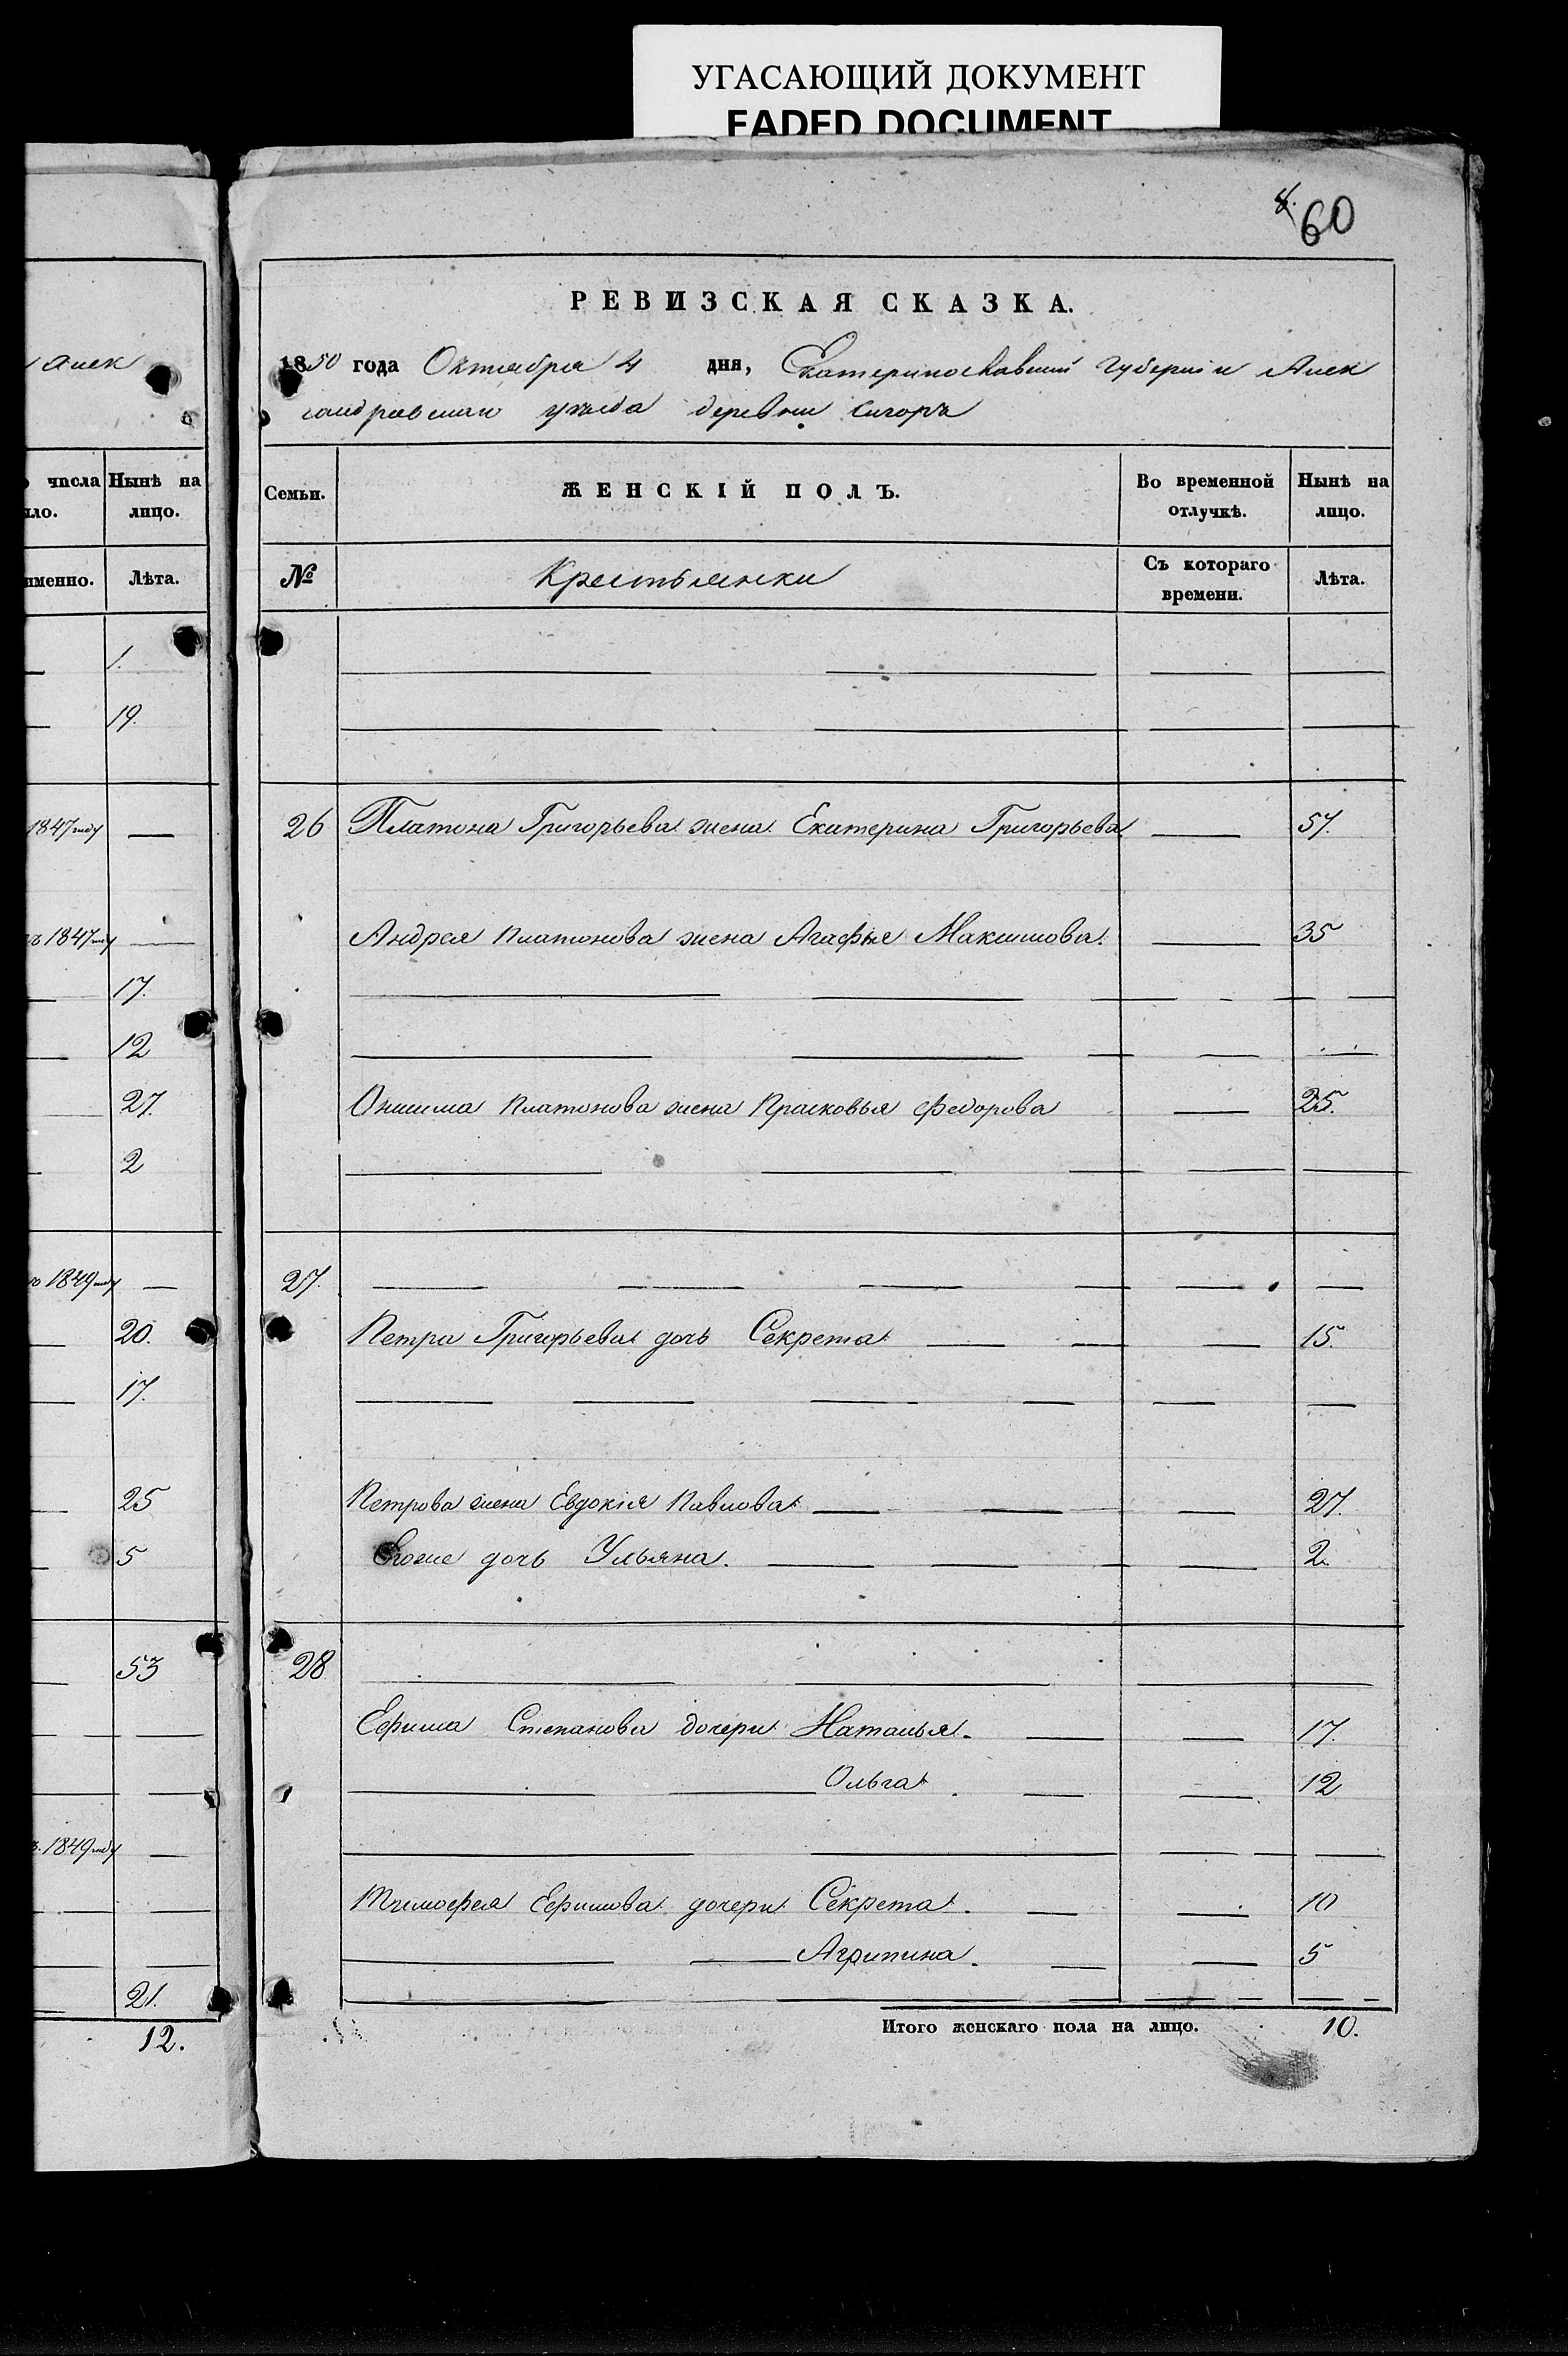 УГАСАЮЩИЙ ДОКУМЕНТ
FADED DOCUMENT
60
РЕВИЗСКАЯ СКАЗКА.
1850 года Октября 4 дня, Екатеринославской Губернии Алек
сандровскаго уѣзда деревни
Семьи. ЖЕНСКІЙ ПОЛЪ. Во временной отлучкѣ. Нынѣ на лицо.
№ Крестьянки Съ котораго времени. Лѣта.
26 Платона Григорьева жена Екатерина Григорьева 57.
Андрея Платонова жена Агафья Максимова. 35
Онисима Платонова жена Прасковья Федорова 25.
27.
Петра Григорьева дочь Секрета 15.
Петрова жена Евдокия Павлова 27.
Егоже дочь Ульяна. 2.
28
Ефима Степанова дочери Наталья. 17.
Ольга. 12
Тимофея Ефимова дочери Секрета. 10
Агрипина. 5
Итого женскаго пола на лицо. 10.
Алек
числа Нынѣ на
ло. лицо.
именно. Лѣта.
1.
19.
1847 году
ъ 1847 году
17.
12
27.
2
1849 году
20.
17.
25
5
53
1849 году
21.
12.